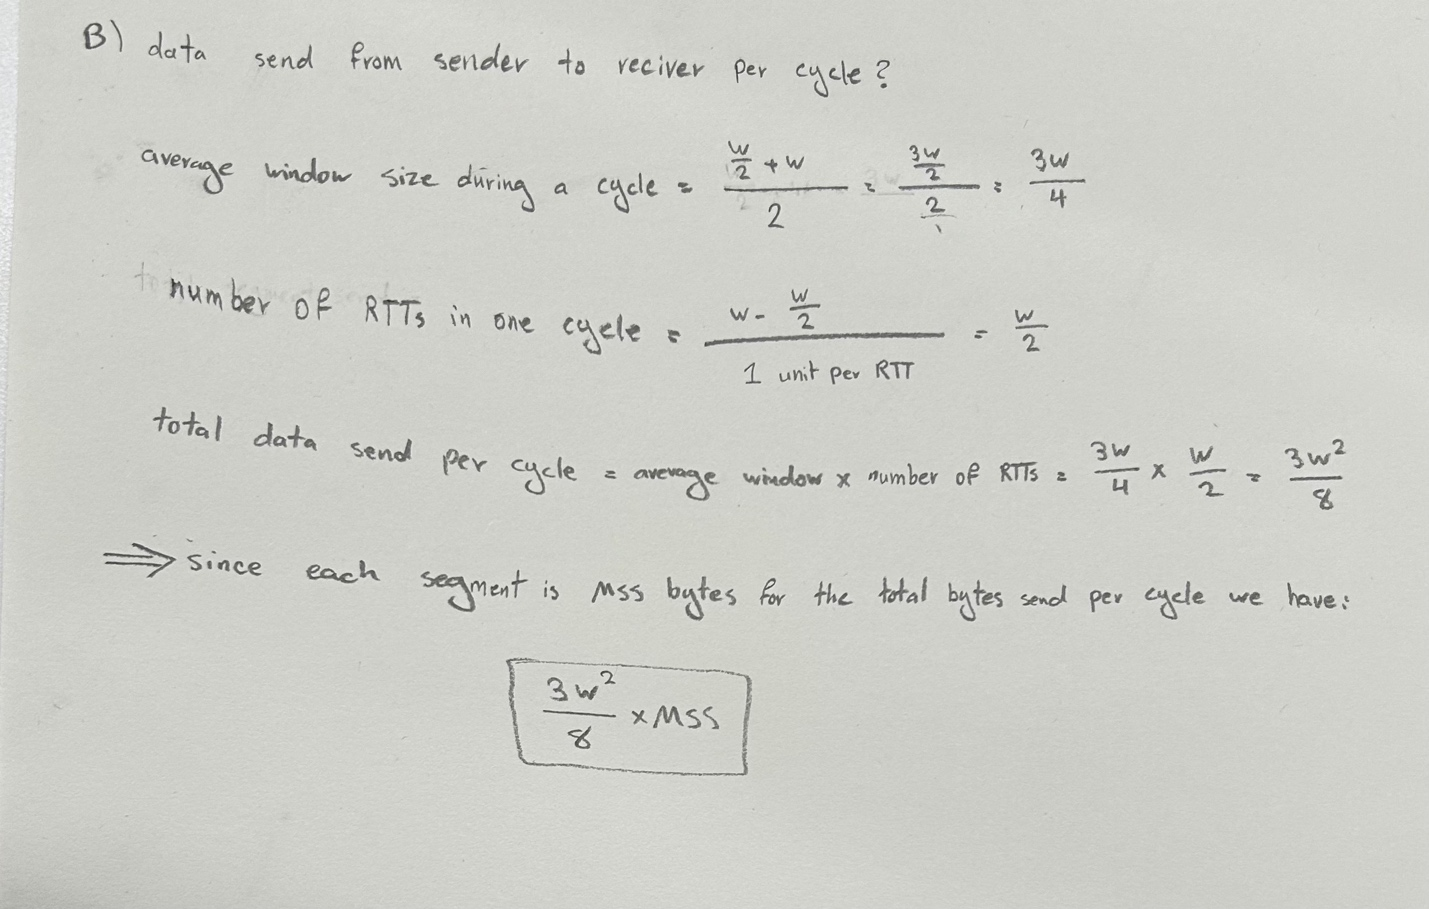 B) data send from sender to reciver per cycle?
average window size during a cycle = (w/2 + w)/2 = (3w/2)/(2/1) = 3w/4
number of RTTs in one cycle = (w - w/2)/(1 unit per RTT) = w/2
total data send per cycle = average window x number of RTTs = 3w/4 x w/2 = 3w²/8
⟹ since each segment is MSS bytes for the total bytes send per cycle we have:
3w²/8 x MSS